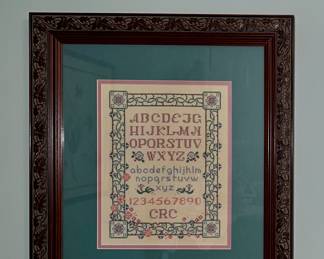 ABCDEFG
HIJKLMN
OPQRSTUV
WXYZ
abcdefghijklm
nopqrstuvw
xyz
1234567890
CRC